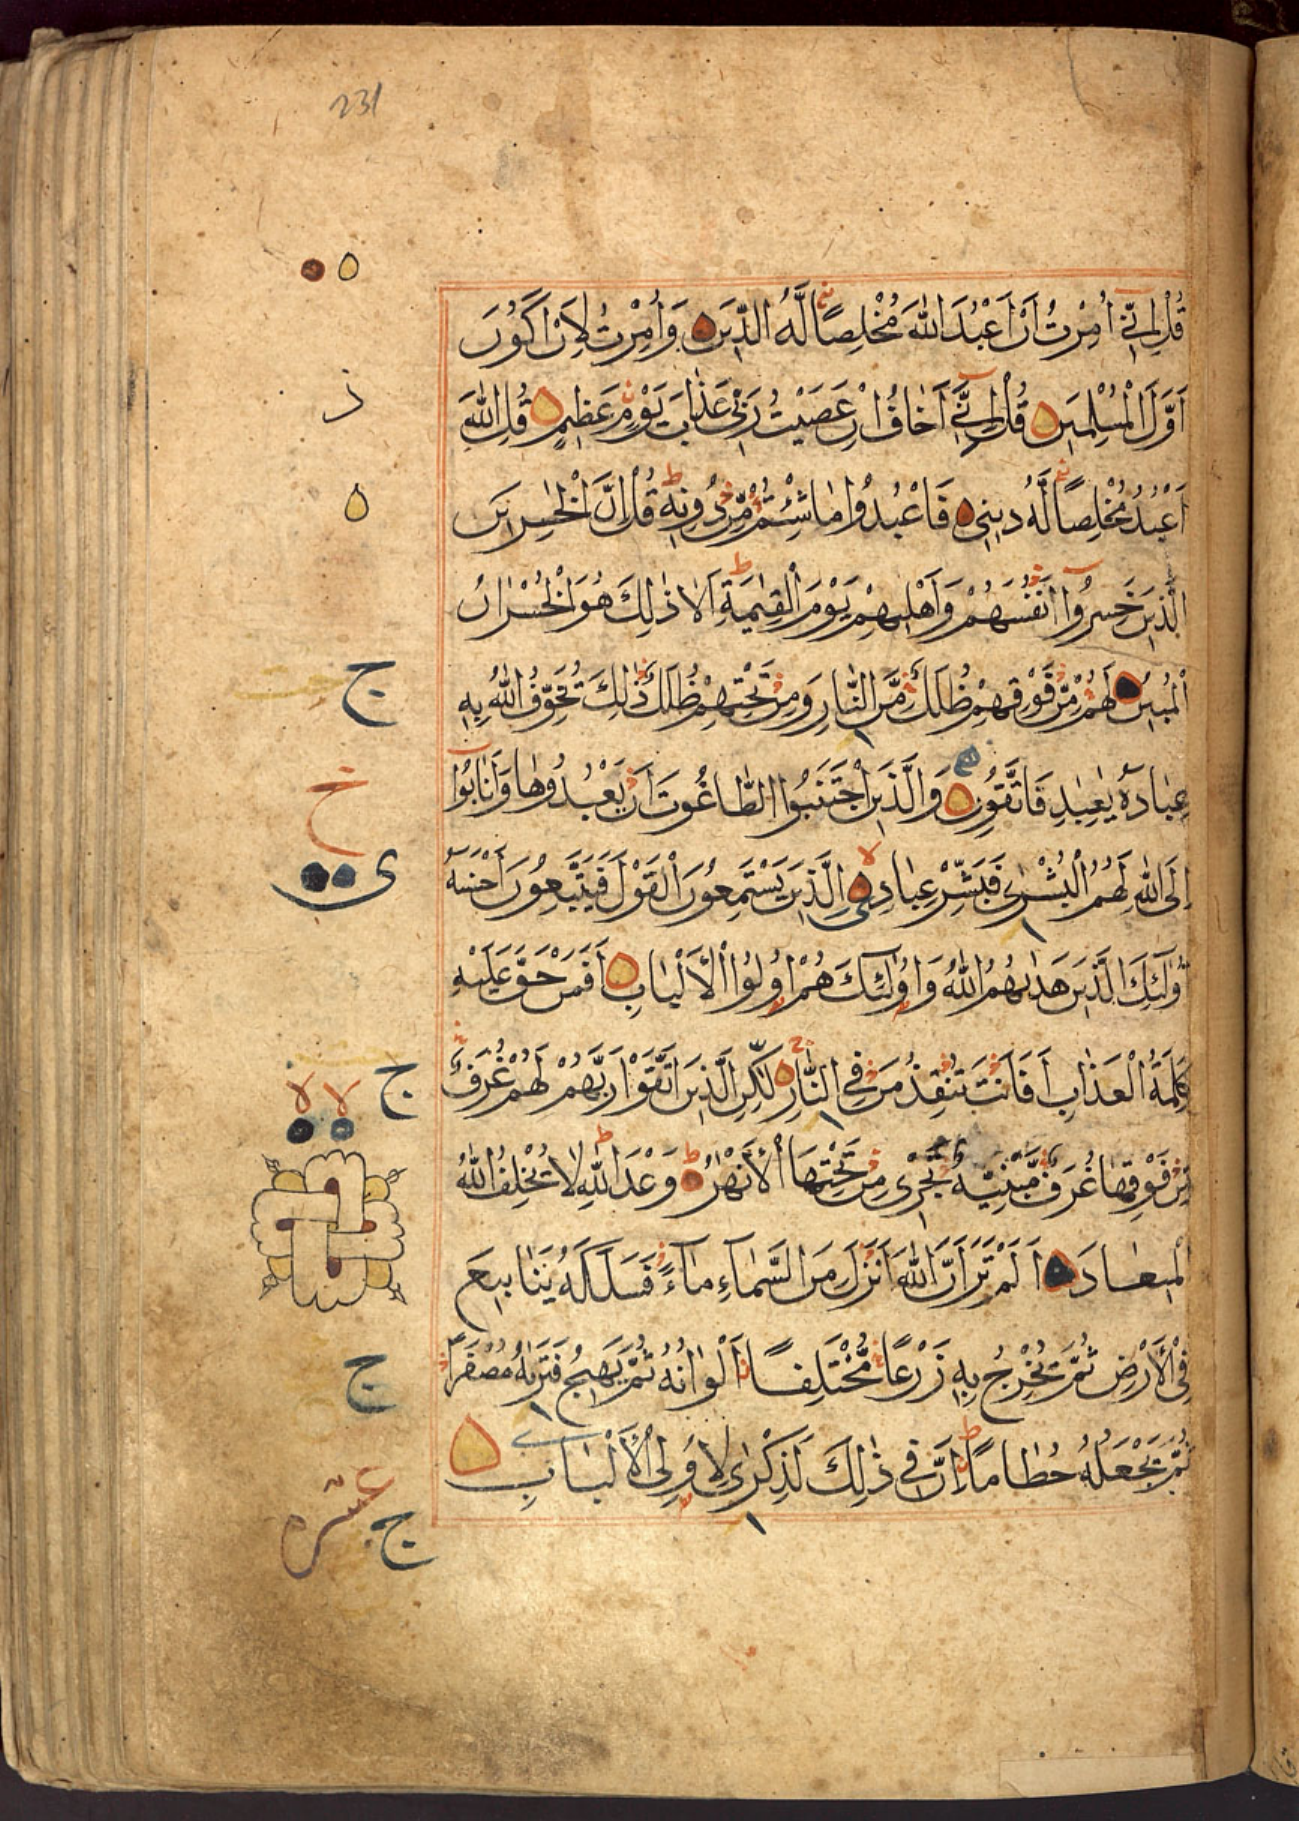 231
قُلْ إِنِّي أُمِرْتُ أَنْ أَعْبُدَ اللَّهَ مُخْلِصًا لَهُ الدِّينَ وَأُمِرْتُ لِأَنْ أَكُونَ
أَوَّلَ الْمُسْلِمِينَ قُلْ إِنِّي أَخَافُ إِنْ عَصَيْتُ رَبِّي عَذَابَ يَوْمٍ عَظِيمٍ قُلِ اللَّهَ
أَعْبُدُ مُخْلِصًا لَهُ دِينِي فَاعْبُدُوا مَا شِئْتُمْ مِنْ دُونِهِ قُلْ إِنَّ الْخٰسِرِينَ
الَّذِينَ خَسِرُوا أَنْفُسَهُمْ وَأَهْلِيهِمْ يَوْمَ الْقِيٰمَةِ أَلَا ذٰلِكَ هُوَ الْخُسْرَانُ
الْمُبِينُ لَهُمْ مِنْ فَوْقِهِمْ ظُلَلٌ مِنَ النَّارِ وَمِنْ تَحْتِهِمْ ظُلَلٌ ذٰلِكَ يُخَوِّفُ اللَّهُ بِهِ
عِبَادَهُ يٰعِبَادِ فَاتَّقُونِ وَالَّذِينَ اجْتَنَبُوا الطَّاغُوتَ أَنْ يَعْبُدُوهَا وَأَنَابُوا
إِلَى اللَّهِ لَهُمُ الْبُشْرٰى فَبَشِّرْ عِبَادِ الَّذِينَ يَسْتَمِعُونَ الْقَوْلَ فَيَتَّبِعُونَ أَحْسَنَهُ
أُولٰئِكَ الَّذِينَ هَدٰىهُمُ اللَّهُ وَأُولٰئِكَ هُمْ أُولُوا الْأَلْبَابِ أَفَمَنْ حَقَّ عَلَيْهِ
كَلِمَةُ الْعَذَابِ أَفَأَنْتَ تُنْقِذُ مَنْ فِي النَّارِ لٰكِنِ الَّذِينَ اتَّقَوْا رَبَّهُمْ لَهُمْ غُرَفٌ
مِنْ فَوْقِهَا غُرَفٌ مَبْنِيَّةٌ تَجْرِي مِنْ تَحْتِهَا الْأَنْهٰرُ وَعْدَ اللَّهِ لَا يُخْلِفُ اللَّهُ
الْمِيعَادَ أَلَمْ تَرَ أَنَّ اللَّهَ أَنْزَلَ مِنَ السَّمَاءِ مَاءً فَسَلَكَهُ يَنَابِيعَ
فِي الْأَرْضِ ثُمَّ يُخْرِجُ بِهِ زَرْعًا مُخْتَلِفًا أَلْوَانُهُ ثُمَّ يَهِيجُ فَتَرٰىهُ مُصْفَرًّا
ثُمَّ يَجْعَلُهُ حُطَامًا إِنَّ فِي ذٰلِكَ لَذِكْرٰى لِأُولِي الْأَلْبَابِ
ج
خ
ى
ج
لا لا
ج
ج عشره